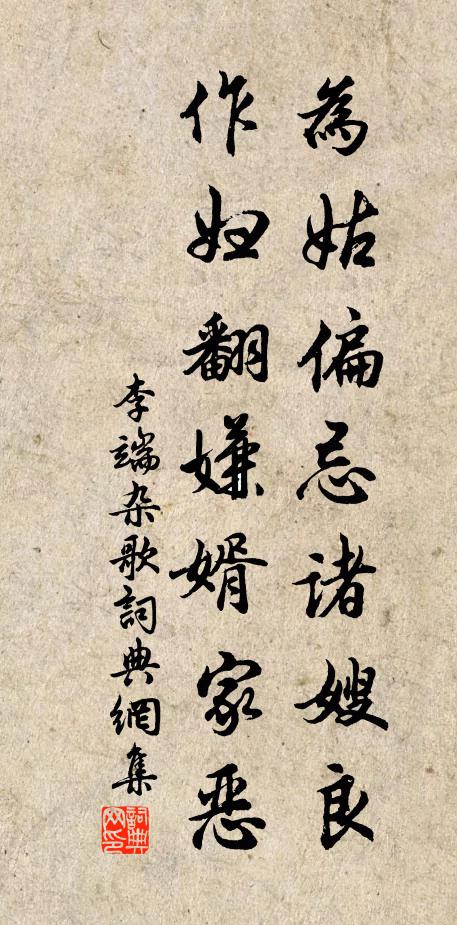 為姑偏忌诸嫂良
作妇翻嫌婿家恶
李端杂歌詞典網集
詞典网印